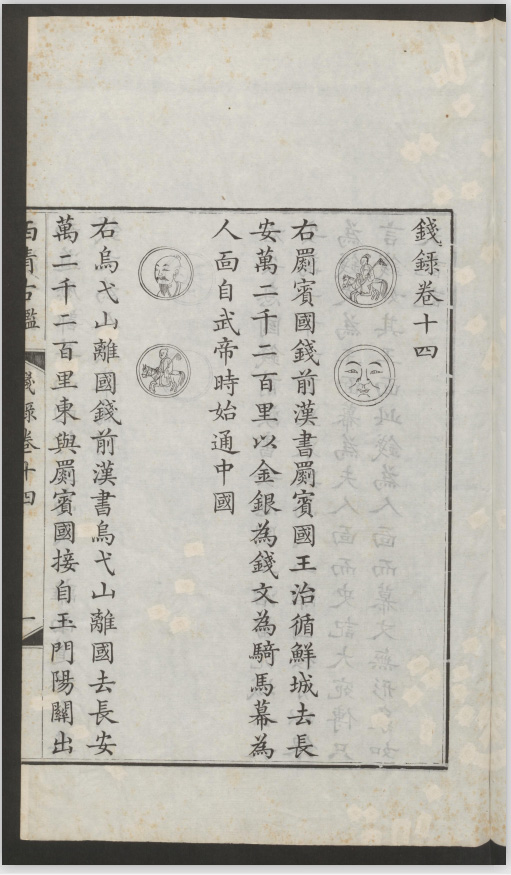 錢錄卷十四
右罽賓國錢前漢書罽賓國王治循鮮城去長
安萬二千二百里以金銀為錢文為騎馬幕為
人面自武帝時始通中國
右烏弋山離國錢前漢書烏弋山離國去長安
萬二千二百里東與罽賓國接自玉門陽關出
西清古鑑 錢錄卷十四 一